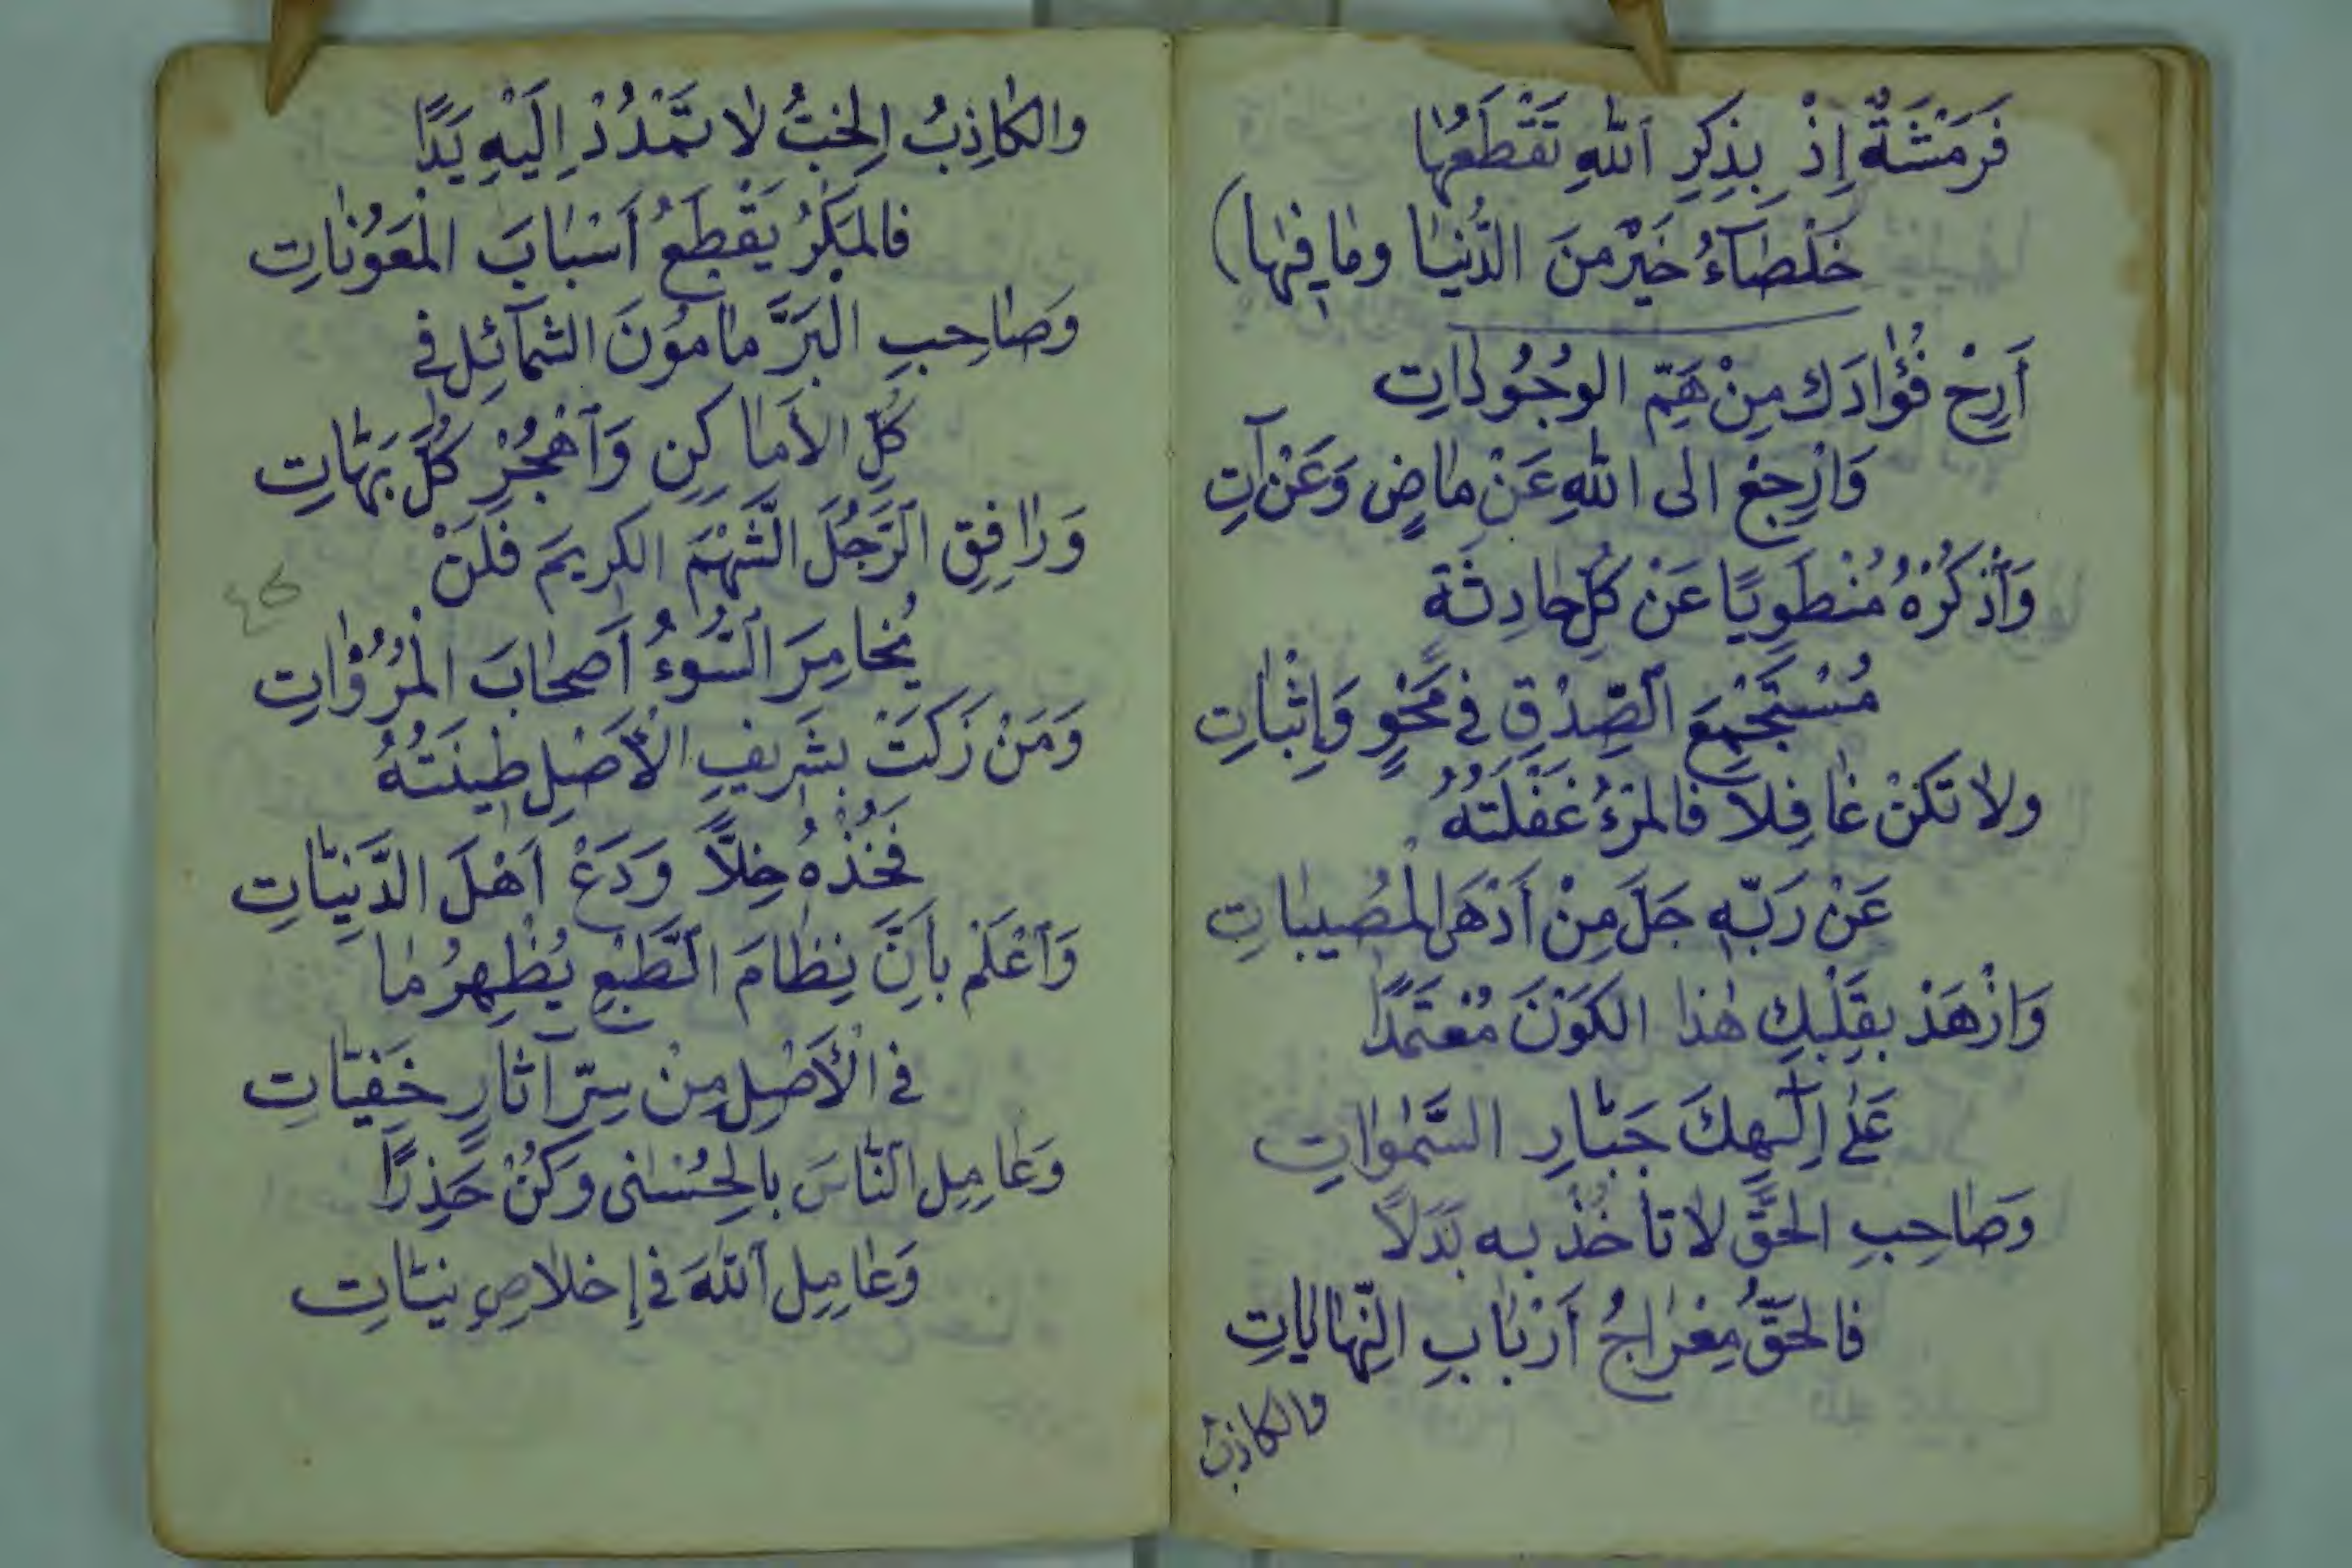 فَرَمْشَةٌ إِذْ بِذِكِرِ ٱللّٰهِ تَقْطَعُهٰا
خَلْصٰآءُ خَيْرٌ مِنَ الدُّنْيٰا ومٰا فِيهٰا)
أَرِحْ فُؤٰادَك مِنْ هَمِّ الوُجُودٰاتِ
وَارْجِعْ الى اللّٰهِ عَنْ مٰاضٍ وَعَنْ آتِ
وَٱذْكُرْهُ مُنْطَوِيًا عَنْ كُلِّ حادِثَةٍ
مُسْتَجْمِعَ ٱلصِّدْقِ فى مَحْوٍ وَإِثْبٰاتِ
ولاٰ تَكُنْ غٰافِلاً فالمَرْءُ غَفْلَتُهُ
عَنْ رَبِّهِ جَلَّ مِنْ أَدْهَى الْمُصِيبٰاتِ
وَازْهَدْ بِقَلْبِكِ هٰذا الكَوْنَ مُعْتَمَدًا
عَلىٰ إِلٰهِكَ جَبّٰارِ السَّمٰوٰاتِ
وَصٰاحِبِ الحَقَّ لاٰ تأخُذْ بِه بَدَلاً
فالحَقُّ مِعْرٰاجُ أَرْبٰابِ النِّهٰايٰاتِ
والكاذِبُ
والكٰاذِبُ الخِبُّ لاٰ تَمْدُدْ اِلَيْهِ يَدًا
فالمَكْرُ يَقْطَعُ أَسْبٰابَ الْمَعَوُنٰاتِ
وَصٰاحِبِ الْبَرَّ مٰامُونَ الشَّمآئِلِ فى
كُلِّ الأَمٰاكِنِ وَٱهْجُرْ كُلَّ بَهّٰاتِ
وَرٰافِقِ ٱلرَّجُلَ الشَّهْمَ الكريمَ فَلَنْ
يُخٰامِرَ ٱلسُّوءُ أَصْحٰابَ الْمُرُوْٰاتِ
46
وَمَنْ زَكَتْ بِشَرِيفِ الْأَصْلِ طِينَتُهُ
فَخُذْهُ خِلاًّ وَدَعْ اَهْلَ الدَّنِيّٰاتِ
وَٱعْلَمْ بِاَنَّ نِظٰامَ ٱلطَّبْعِ يُظْهِرُ مٰا
فى الْأَصْلِ مِنْ سِرِّ آثارٍ خَفِيّٰاتِ
وَعٰامِلِ ٱلنّٰاسَ بالحُسْنٰى وَكُنْ حَذِرًا
وَعٰامِلِ ٱللّٰهَ فى إِخلاٰصِ نِيّٰاتِ